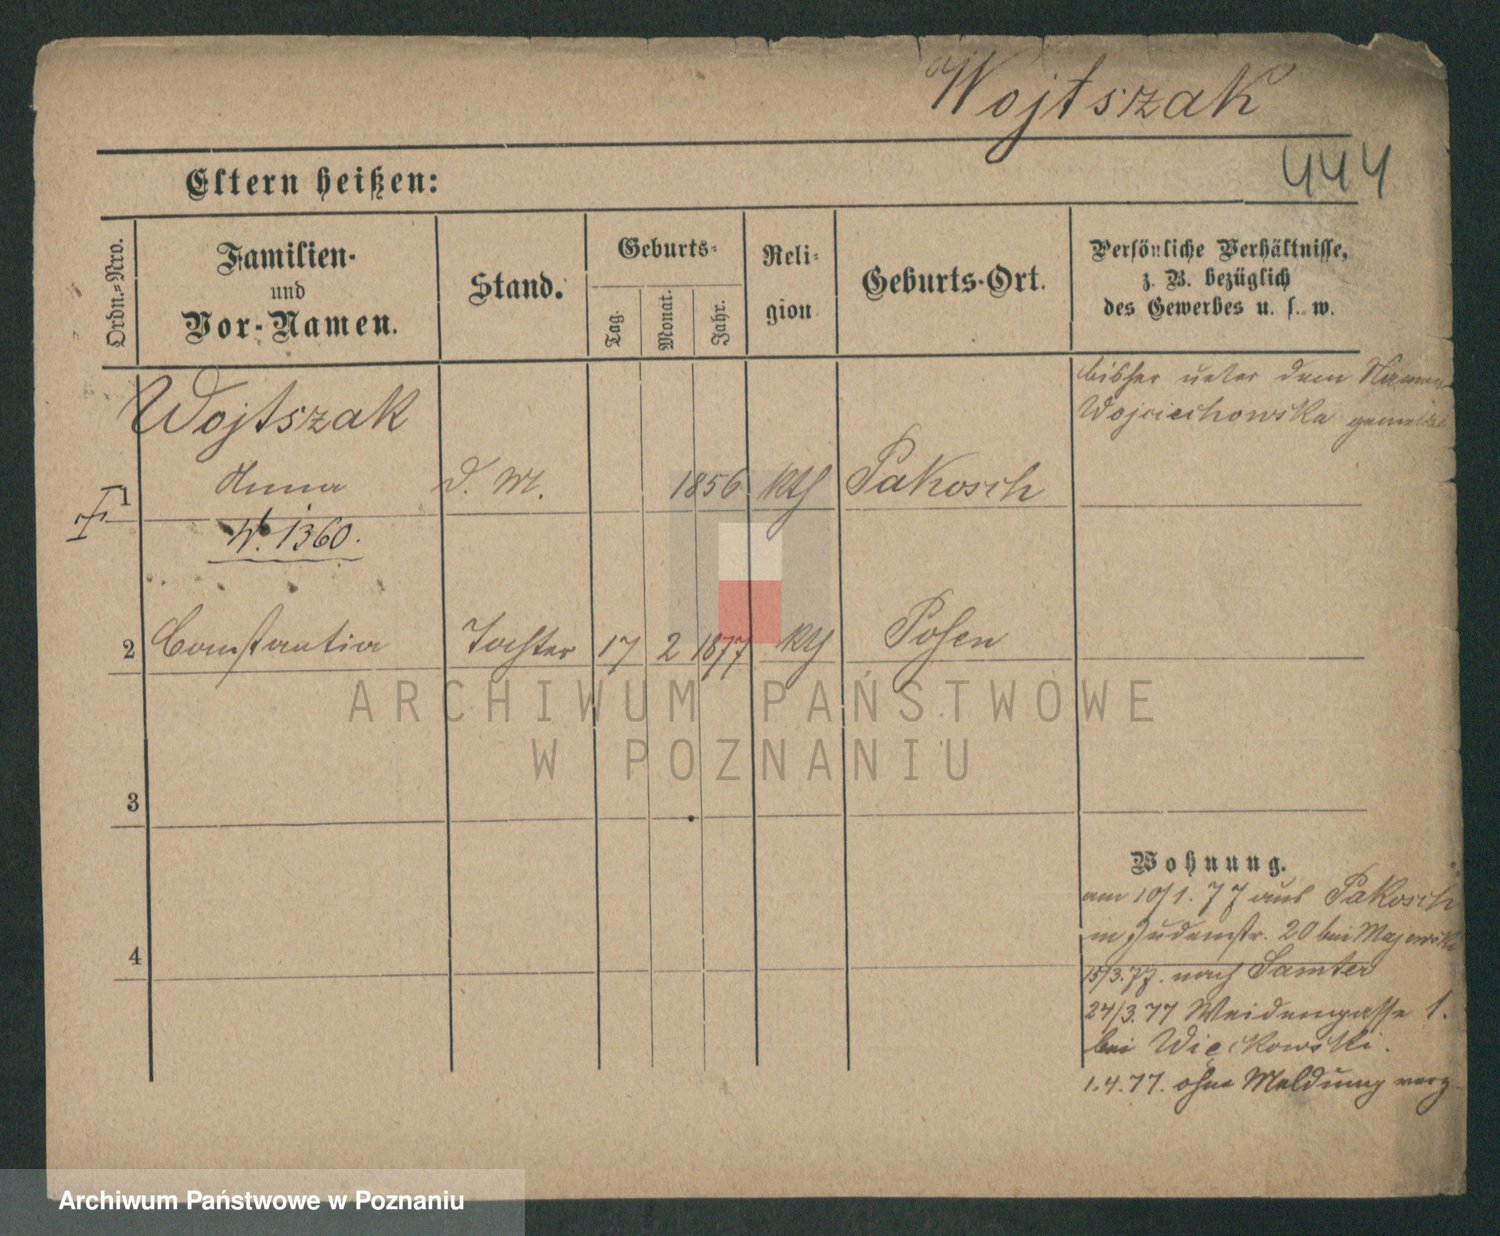 Wojtszak
444
Eltern heißen:
Ordn.-Nro.
Familien-
und
Vor-Namen.
Stand.
Geburts-
Tag.
Monat.
Jahr.
Reli-
gion
Geburts-Ort.
Persönliche Verhältnisse,
z. B. bezüglich
des Gewerbes u. s. w.
bisher unter dem Namen
Wojciechowska gemeldet
Wojtszak
1 Anna D. M. 1856 kth Pakosch
W. 1360.
2 Constantia Tochter 17 2 1877 kth Posen
3
4
Wohnung.
am 10/1. 77 aus Pakosch
in Judenstr. 20 bei Majewski
15/3. 77. nach Samter
24/3. 77 Weidengasse 1.
bei Więckowski.
1.4.77. ohne Meldung verz
ARCHIWUM PAŃSTWOWE
W POZNANIU
Archiwum Państwowe w Poznaniu